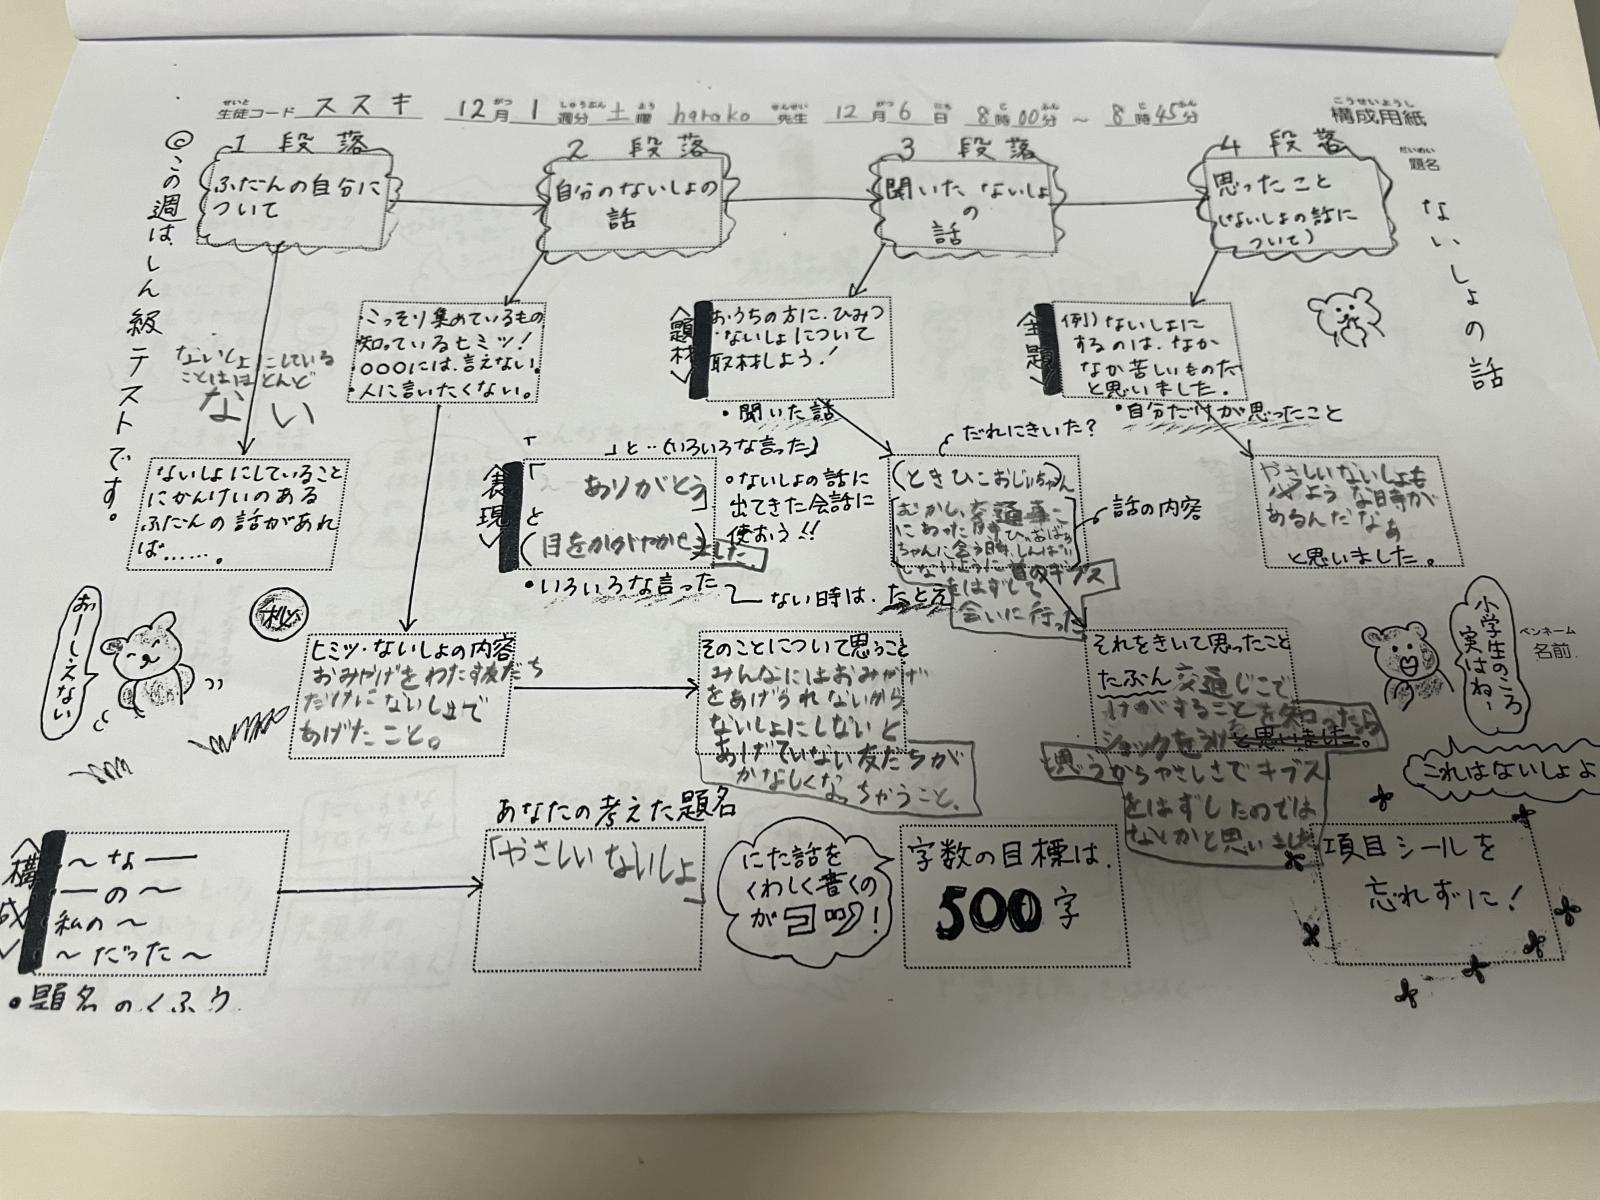 せいと
生徒コード ススキ 12月 1週分 土曜 harako 先生 12月6日 8時00分 ~ 8時45分
こうせいようし
構成用紙
だいめい
題名
ないしょの話
◎この週は、しん級テストです。
1 段落
ふだんの自分に
ついて
2 段落
自分のないしょの
話
3 段落
聞いた ないしょ
の
話
4 段落
思ったこと
(ないしょの話に
ついて)
ないしょにしている
ことはほとんど
ない
ないしょにしていること
にかんけいのある
ふだんの話があれ
ば……。
・こっそり集めているもの
・知っているヒミツ!
・〇〇〇には、言えない。
・人に言いたくない。
<題材>
おうちの方に、ひみつ
・ないしょについて
取材しよう!
・聞いた話
<主題>
例)ないしょに
するのは、なか
なか苦しいものだ
と思いました。
・自分だけが思ったこと
<表現>
「 」と‥(いろいろな言った)
「ありがとう」
と
(目をかがやかせ)ました
・いろいろな言った
。ないしょの話に
出てきた会話に
使おう!!
ない時は、たとえ
だれにきいた?
(ときひこおじいちゃん)
むかし、交通事こ
にあった時、ひいおばあ
ちゃんに会う時、しんぱい
しないように首のギプス
をはずして
会いに行った
話の内容
やさしいないしょも
ひつような時が
あるんだなぁ
と思いました。
おーしえない
㊙
ヒミツ・ないしょの内容
おみやげをわたす友だち
だけにないしょで
あげたこと。
そのことについて思うこと
みんなにはおみやげ
をあげられないから
ないしょにしないと
あげていない友だちが
かなしくなっちゃうこと、
それをきいて思ったこと
たぶん交通じこで
けがすることを知ったら
ショックをうけと思いました。
と思うからやさしさでギブス
をはずしたのでは
ないかと思いました
小学生のころ
実はね〜
ペンネーム
名前
これはないしょよ
<構成>
〜な―
―の〜
私の〜
〜だった〜
・題名のくふう
あなたの考えた題名
「やさしいないしょ」
にた話を
くわしく書くの
がコツ!
字数の目標は、
500字
項目シールを
忘れずに!